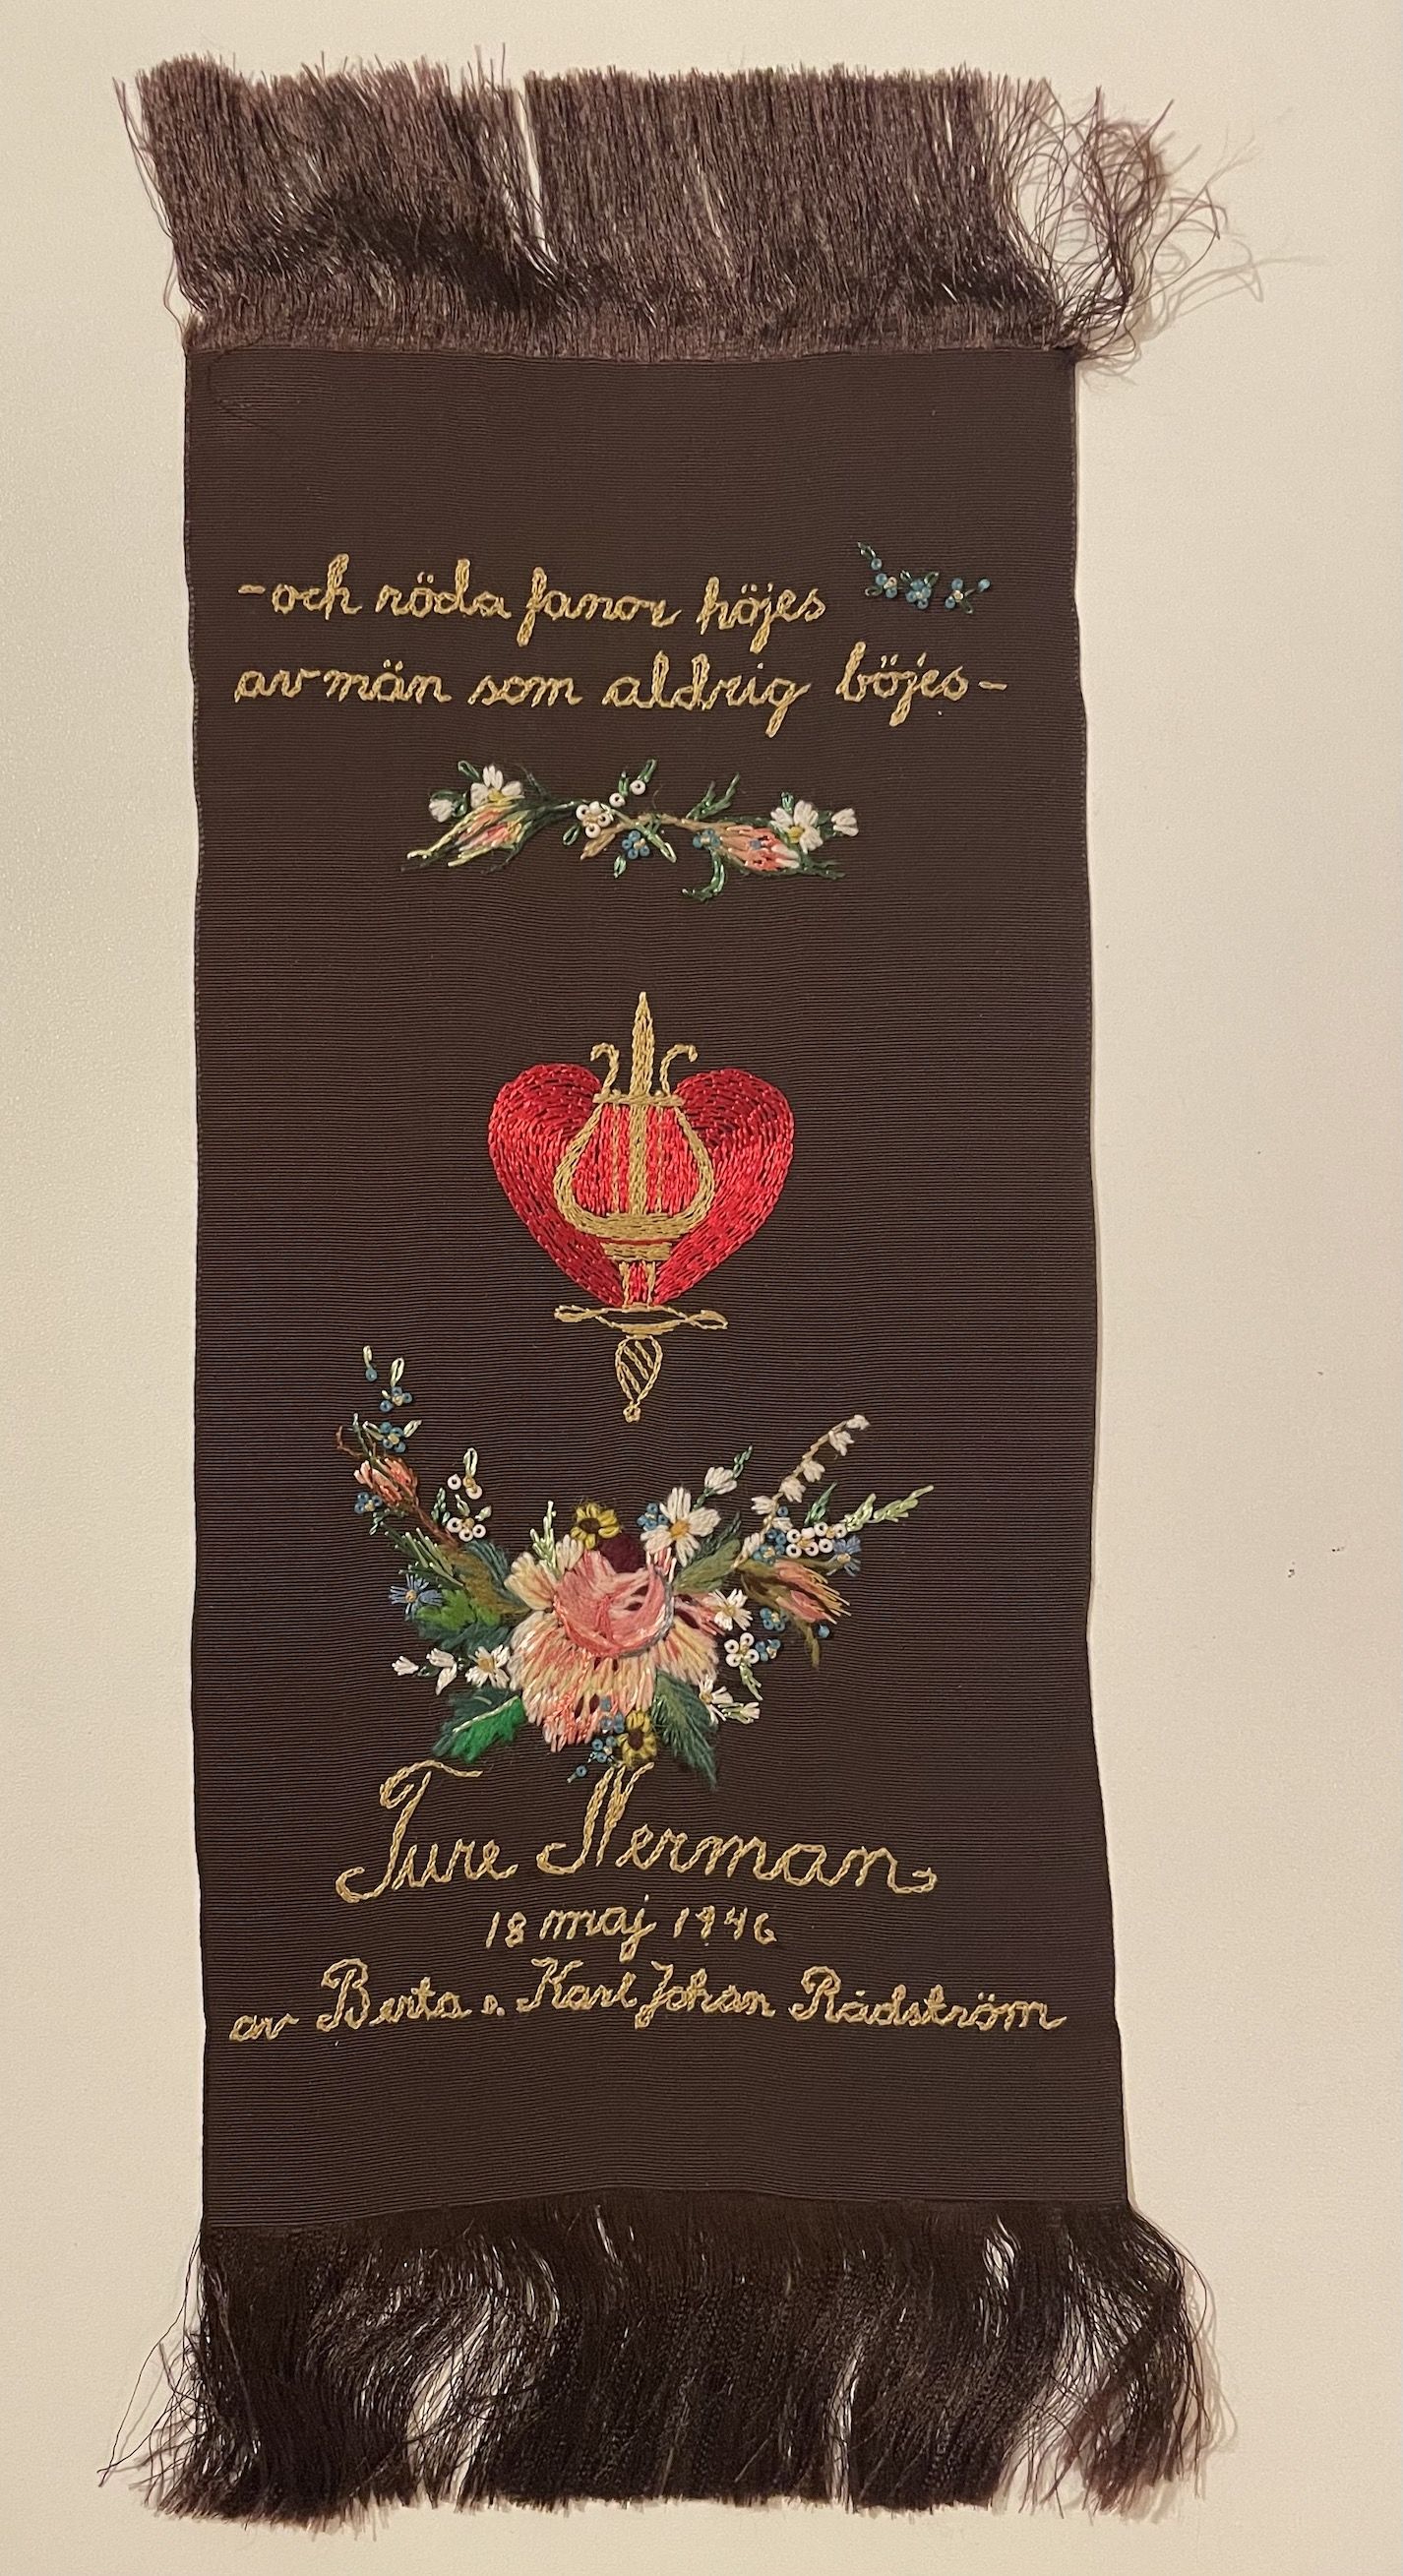 -och röda fanor höjes
av män som aldrig böjes-
Ture Nerman
18 maj 1946
av Berta o. Karl Johan Rådström